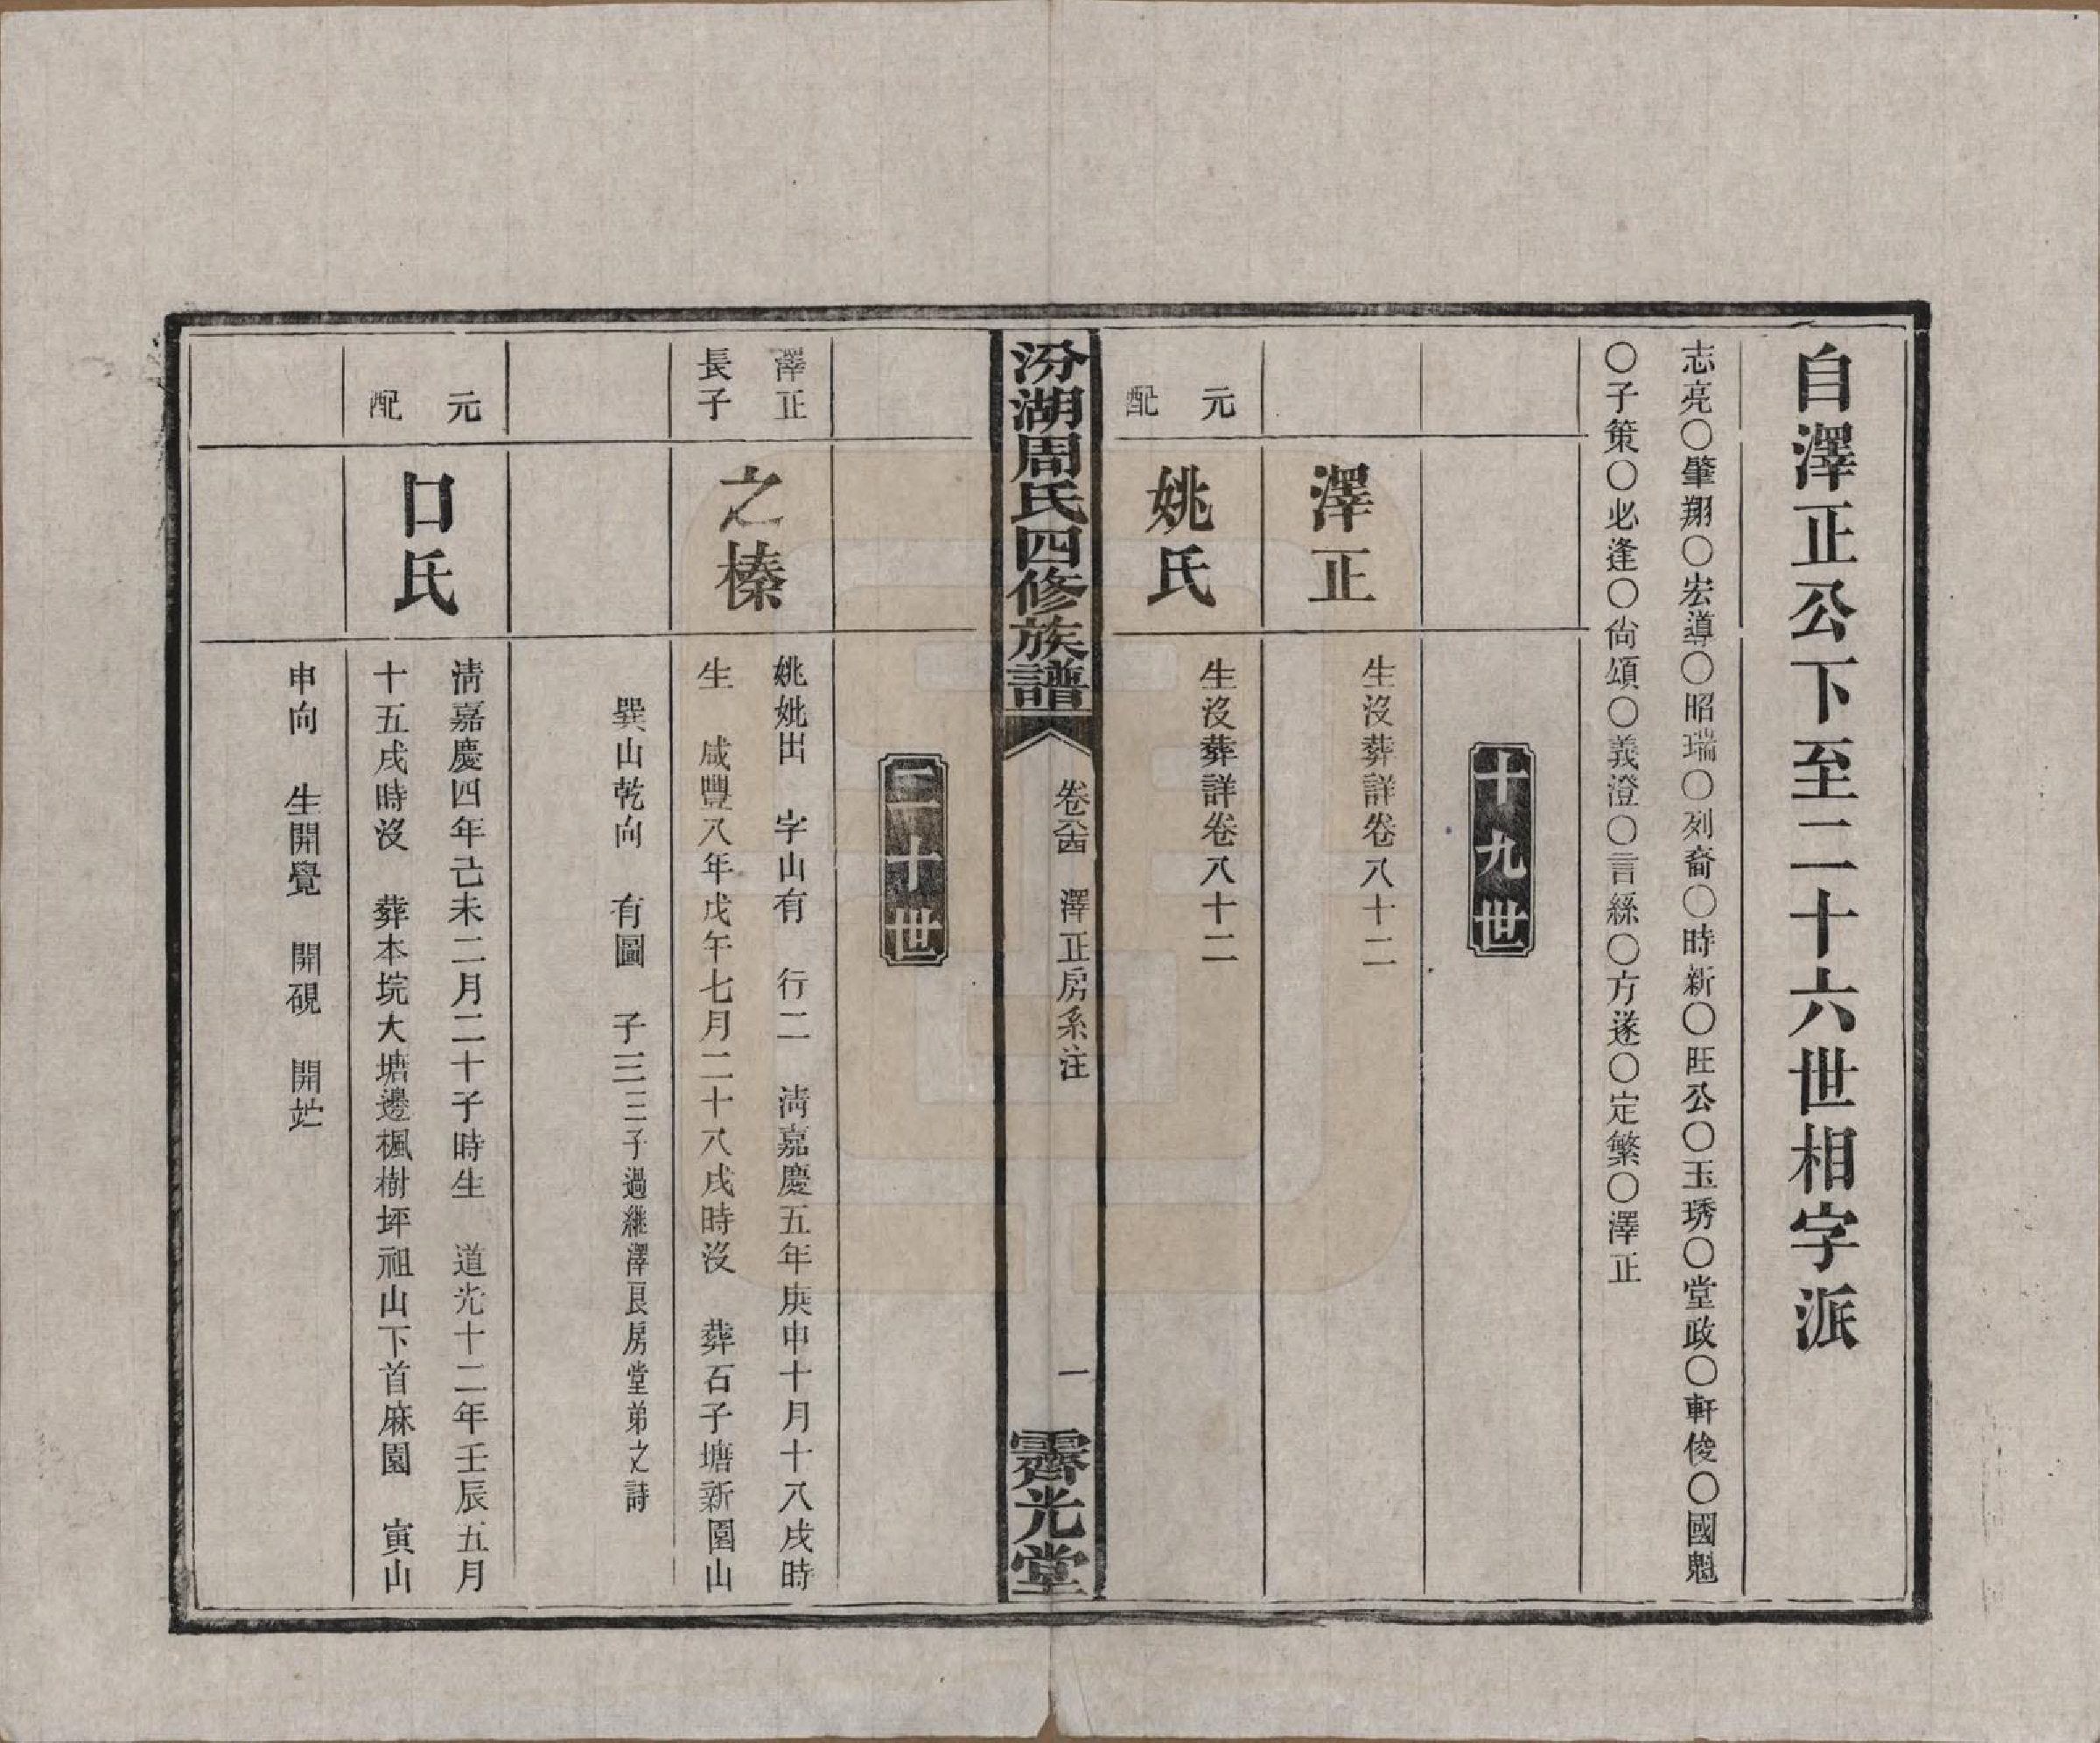 自澤正公下至二十六世相字派
志亮〇肇翔〇宏導〇昭瑞〇列裔〇時新〇旺公〇玉琇〇堂政〇軒俊〇國魁
〇子策〇必逢〇尙頌〇義澄〇言絲〇方遂〇定繁〇澤正
十九世
澤正
生沒葬詳卷八十二
元配
姚氏
生沒葬詳卷八十二
汾湖周氏四修族譜
卷八十四 澤正房系注
一
霽光堂
二十世
澤正
長子
之榛
姚妣出 字山有 行二 淸嘉慶五年庚申十月十八戌時
生 咸豐八年戊午七月二十八戌時沒 葬石子塘新園山
巽山乾向 有圖 子三三子過繼澤艮房堂弟之詩
元配
口氏
淸嘉慶四年己未二月二十子時生 道光十二年壬辰五月
十五戌時沒 葬本垸大塘邊楓樹坪祖山下首麻園 寅山
申向 生開覺 開硯 開